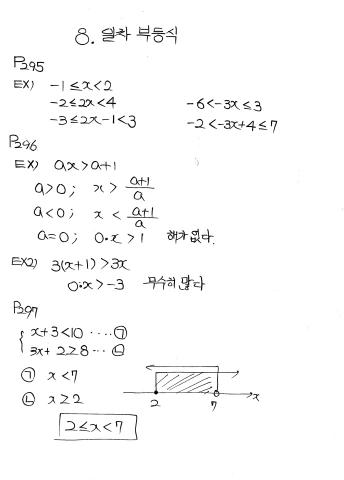 8. 일차 부등식
P295
EX) -1≤x<2
-2≤2x<4 -6<-3x≤3
-3≤2x-1<3 -2<-3x+4≤7
P296
EX) ax>a+1
a>0; x> a+1/a
a<0; x< a+1/a
a=0; 0·x>1 해가 없다.
EX2) 3(x+1)>3x
0·x>-3 무수히 많다
P297
x+3<10 ····㉠
3x+2≥8···㉡
㉠ x<7
㉡ x≥2
2 7 x
2≤x<7